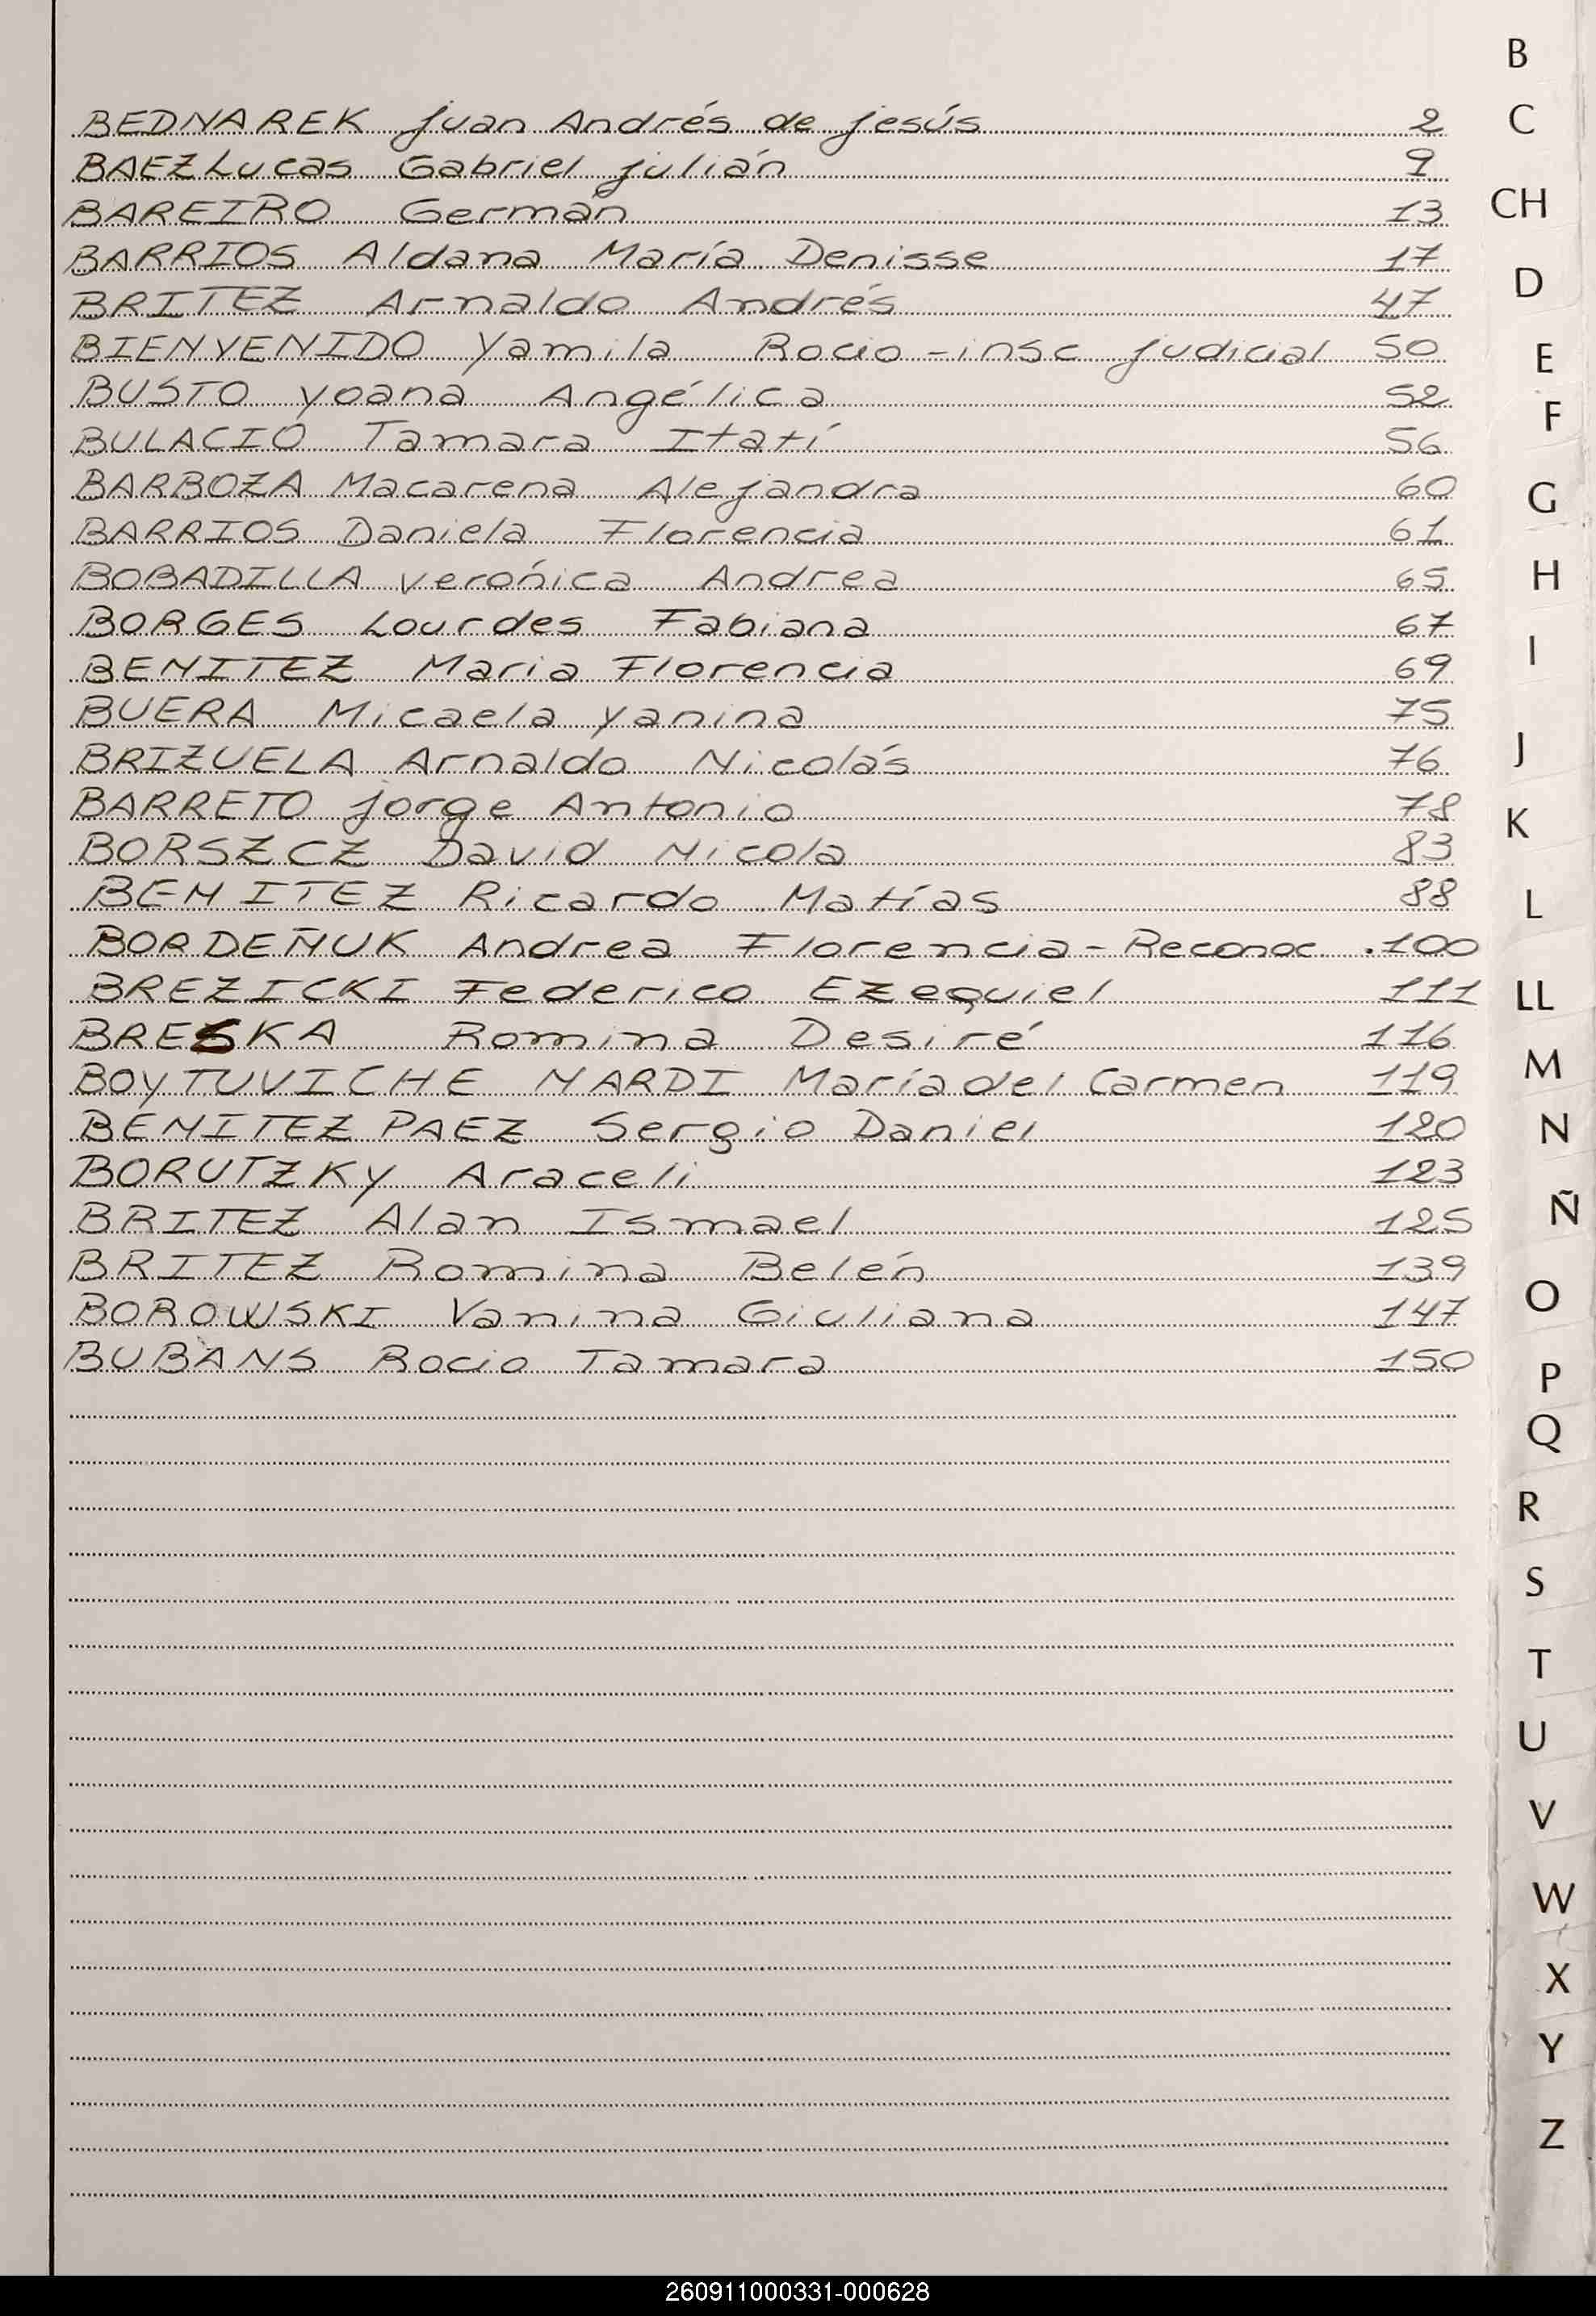 BEDNAREK Juan Andrés de Jesús 2
BAEZ Lucas Gabriel Julián 9
BAREIRO Germán 13
BARRIOS Aldana María Denisse 17
BRITEZ Arnaldo Andrés 47
BIENVENIDO Yamila Rocio - insc judicial 50
BUSTO Yoana Angélica 52
BULACIO Tamara Itatí 56
BARBOZA Macarena Alejandra 60
BARRIOS Daniela Florencia 61
BOBADILLA Verónica Andrea 65
BORGES Lourdes Fabiana 67
BENITEZ Maria Florencia 69
BUERA Micaela Yanina 75
BRIZUELA Arnaldo Nicolás 76
BARRETO Jorge Antonio 78
BORSZCZ David Nicola 83
BENITEZ Ricardo Matías 88
BORDEÑUK Andrea Florencia - Reconoc. 100
BREZICKI Federico Ezequiel 111
BRESKA Romina Desiré 116
BOYTUVICHE NARDI María del Carmen 119
BENITEZ PAEZ Sergio Daniel 120
BORUTZKY Araceli 123
BRITEZ Alan Ismael 125
BRITEZ Romina Belén 139
BOROWSKI Vanina Giuliana 147
BUBANS Rocio Tamara 150
B
C
CH
D
E
F
G
H
I
J
K
L
LL
M
N
Ñ
O
P
Q
R
S
T
U
V
W
X
Y
Z
260911000331-000628